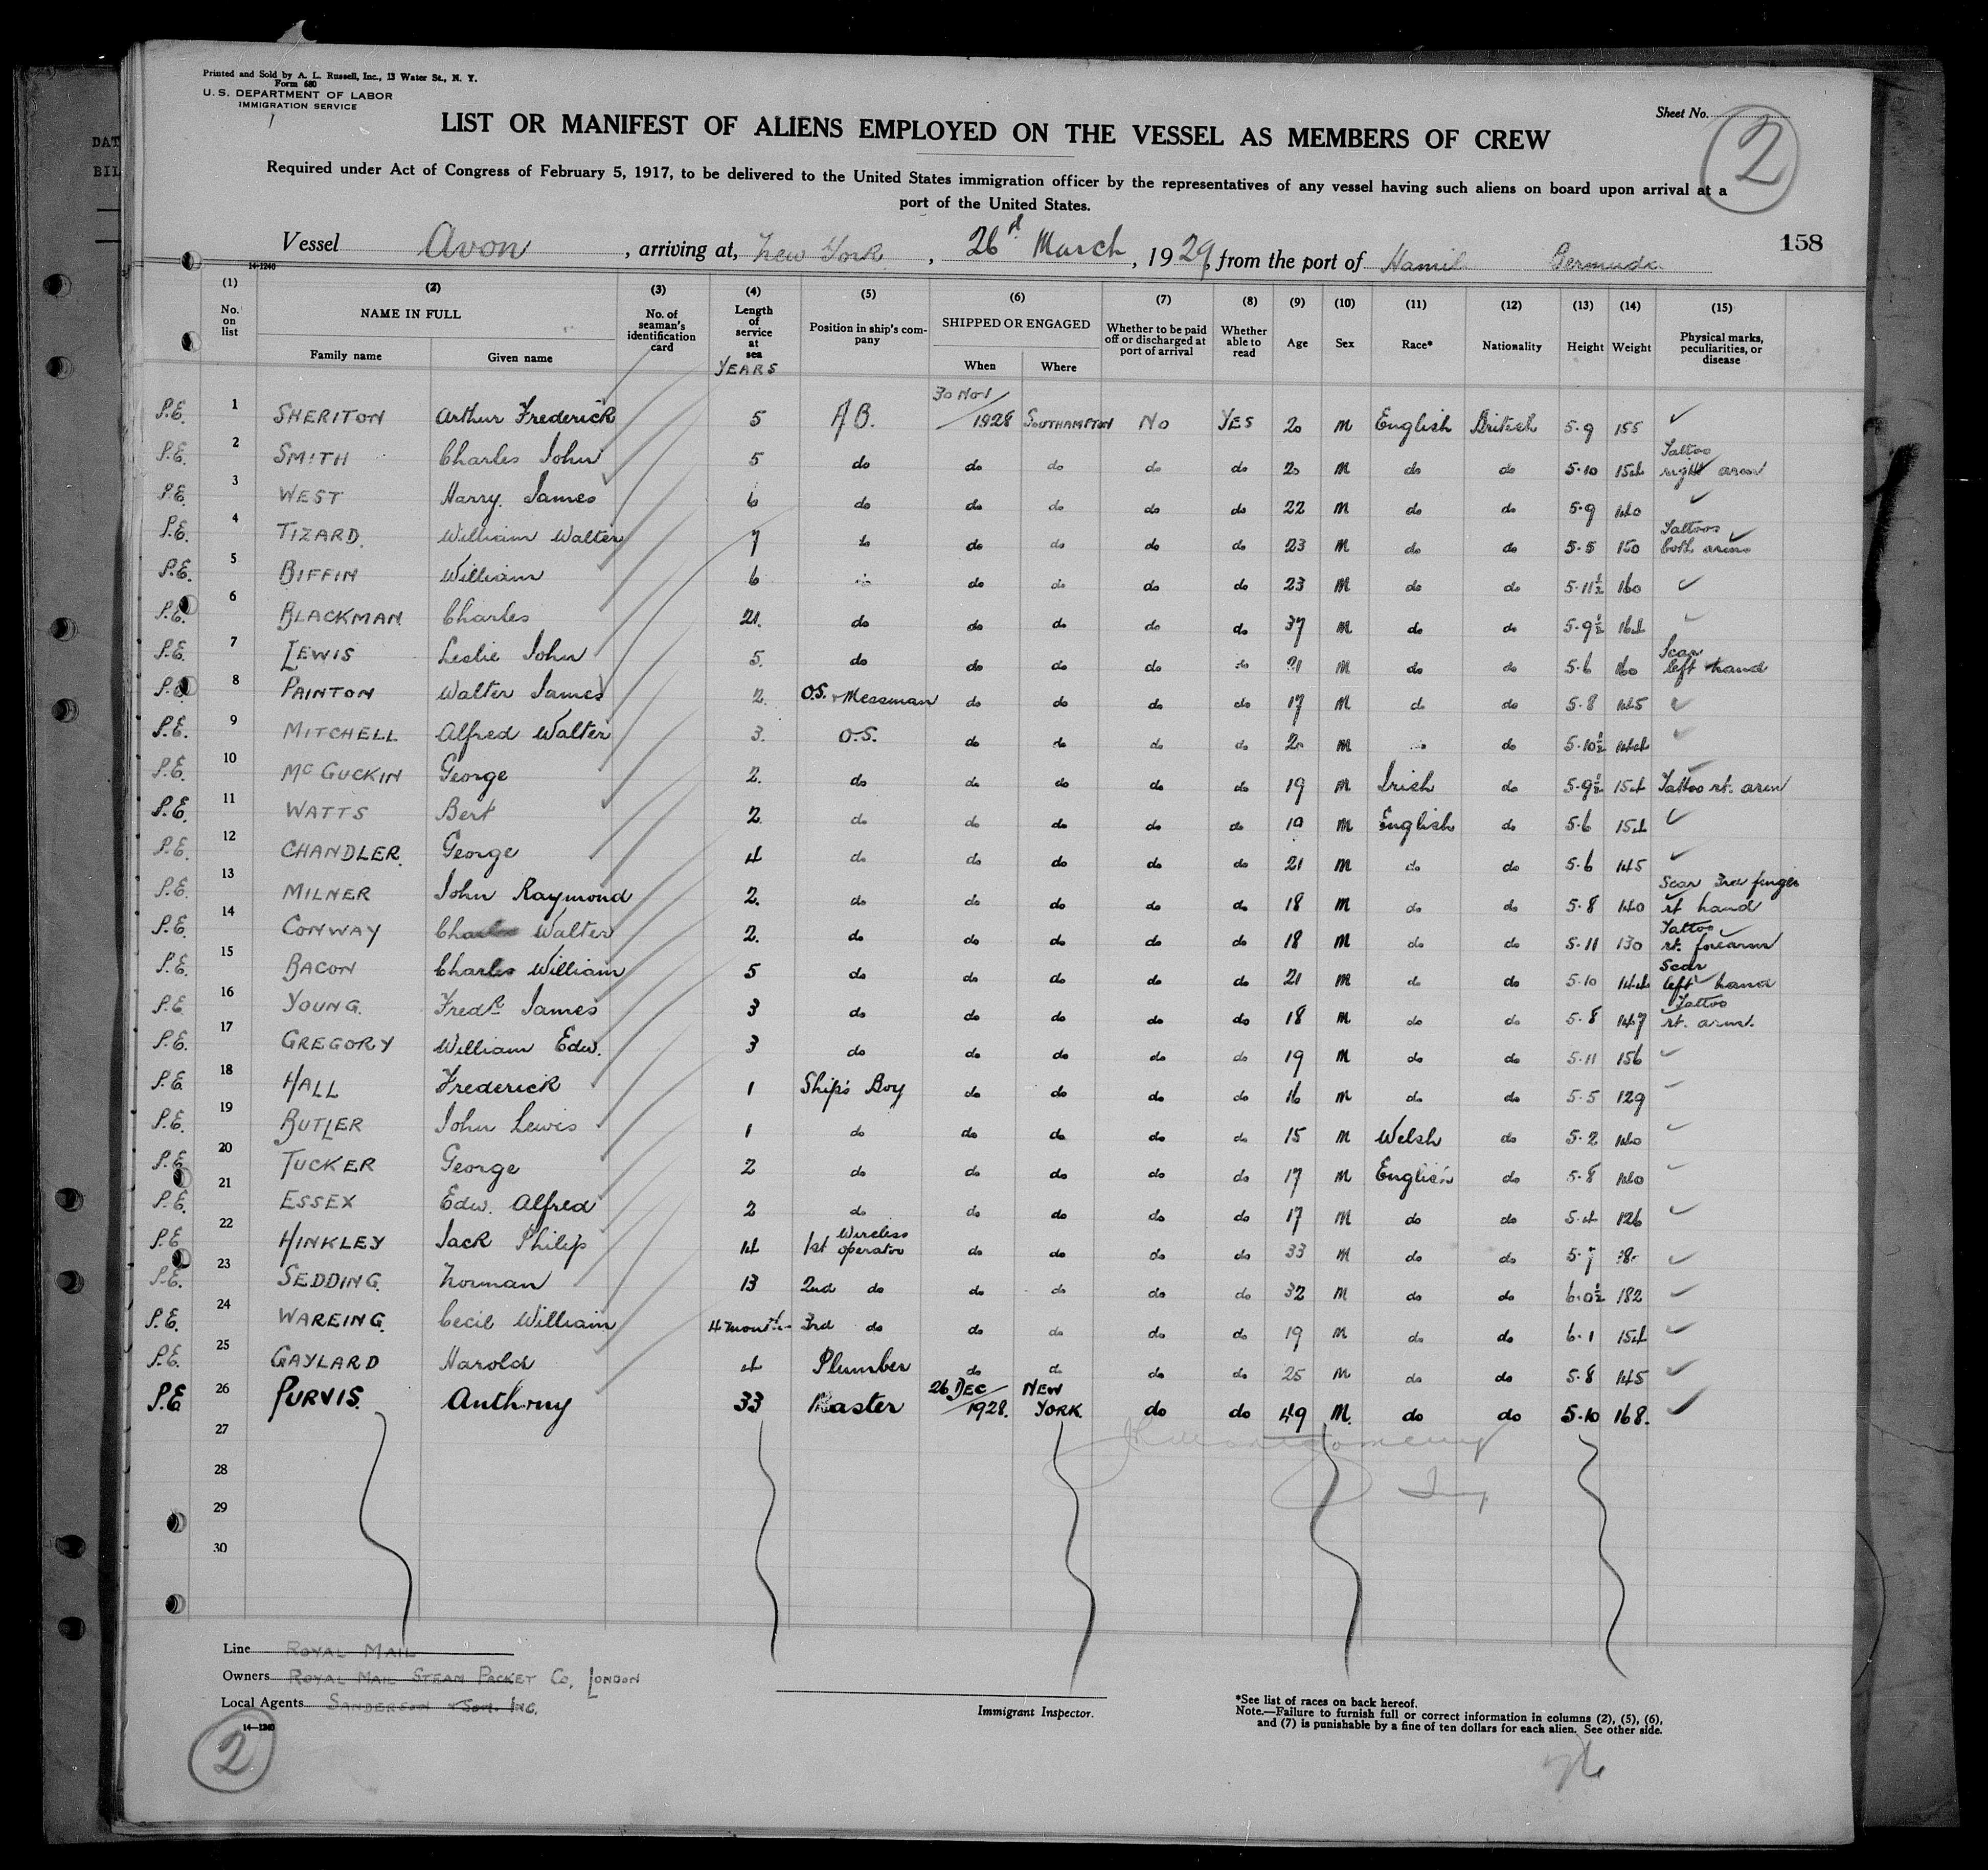 Printed and Sold by A. L. Russell, Inc., 13 Water St., N. Y.
Form 680
U. S. DEPARTMENT OF LABOR
IMMIGRATION SERVICE
Sheet No. 2
LIST OR MANIFEST OF ALIENS EMPLOYED ON THE VESSEL AS MEMBERS OF CREW
Required under Act of Congress of February 5, 1917, to be delivered to the United States immigration officer by the representatives of any vessel having such aliens on board upon arrival at a
port of the United States.
DAT
BIL
Vessel Avon, arriving at, New York, 26 March, 1929, from the port of Hamil Bermuda
158
14-1240
(1) (2) (3) (4) (5) (6) (7) (8) (9) (10) (11) (12) (13) (14) (15)
No. on list NAME IN FULL Family name Given name No. of seaman's identification card Length of service at sea YEARS Position in ship's company SHIPPED OR ENGAGED When Where Whether to be paid off or discharged at port of arrival Whether able to read Age Sex Race* Nationality Height Weight Physical marks, peculiarities, or disease
P.E. 1 SHERITON Arthur Frederick 5 A.B. 30 Nov/1928 SOUTHAMPTON No YES 20 M English British 5.9 155 ✓
P.E. 2 SMITH Charles John 5 do do do do do 20 M do do 5.10 154 Tattoo right arm
P.E. 3 WEST Harry James 6 do do do do do 22 M do do 5.9 140 ✓
P.E. 4 TIZARD William Walter 7 do do do do do 23 M do do 5.5 150 Tattoos both arms
P.E. 5 BIFFIN William 6 do do do do 23 M do do 5.11½ 160 ✓
P.E. 6 BLACKMAN Charles 21 do do do do do 37 M do do 5.9½ 164 ✓
P.E. 7 LEWIS Leslie John 5 do do do do do 21 M do do 5.6 160 Scar left hand
P.E. 8 PAINTON Walter James 2 O.S. + Messman do do do do 17 M do do 5.8 145 ✓
P.E. 9 MITCHELL Alfred Walter 3 O.S. do do do do 20 M do 5.10½ 144 ✓
P.E. 10 McGUCKIN George 2 do do do do do 19 M Irish do 5.9½ 154 Tattoo rt. arm
P.E. 11 WATTS Bert 2 do do do do do 19 M English do 5.6 154 ✓
P.E. 12 CHANDLER George 4 do do do do do 21 M do do 5.6 145 ✓
P.E. 13 MILNER John Raymond 2 do do do do do 18 M do do 5.8 140 Scar 3rd finger rt hand
P.E. 14 CONWAY Walter 2 do do do do do 18 M do do 5.11 130 Tattoo rt. forearm
P.E. 15 BACON Charles William 5 do do do do do 21 M do do 5.10 144 Scar left hand
P.E. 16 YOUNG Fredk James 3 do do do do do 18 M do do 5.8 147 Tattoo rt. arm.
P.E. 17 GREGORY William Edw. 3 do do do do do 19 M do do 5.11 156 ✓
P.E. 18 HALL Frederick 1 Ship's Boy do do do do 16 M do do 5.5 129 ✓
P.E. 19 BUTLER John Lewis 1 do do do do do 15 M Welsh do 5.2 140 ✓
P.E. 20 TUCKER George 2 do do do do do 17 M English do 5.8 140 ✓
P.E. 21 ESSEX Edw. Alfred 2 do do do do do 17 M do do 5.4 126 ✓
P.E. 22 HINKLEY Jack Philip 14 1st Wireless operator do do do do 33 M do do ✓
P.E. 23 SEDDING Norman 13 2nd do do do do do 32 M do do 6.0½ 182 ✓
P.E. 24 WAREING Cecil William 4 months 3rd do do do do do 19 M do do 6.1 154 ✓
P.E. 25 GAYLARD Harold 4 Plumber do do do do 25 M do do 5.8 145 ✓
P.E. 26 PURVIS Anthony 33 Master 26 DEC/1928. NEW YORK do do 49 M. do do 5.10 168. ✓
27
28
29
30
Line ROYAL MAIL
Owners ROYAL MAIL STEAM PACKET Co, LONDON
Local Agents SANDERSON & SON. INC.
14-1240
2
Immigrant Inspector.
*See list of races on back hereof.
Note.—Failure to furnish full or correct information in columns (2), (5), (6),
and (7) is punishable by a fine of ten dollars for each alien. See other side.